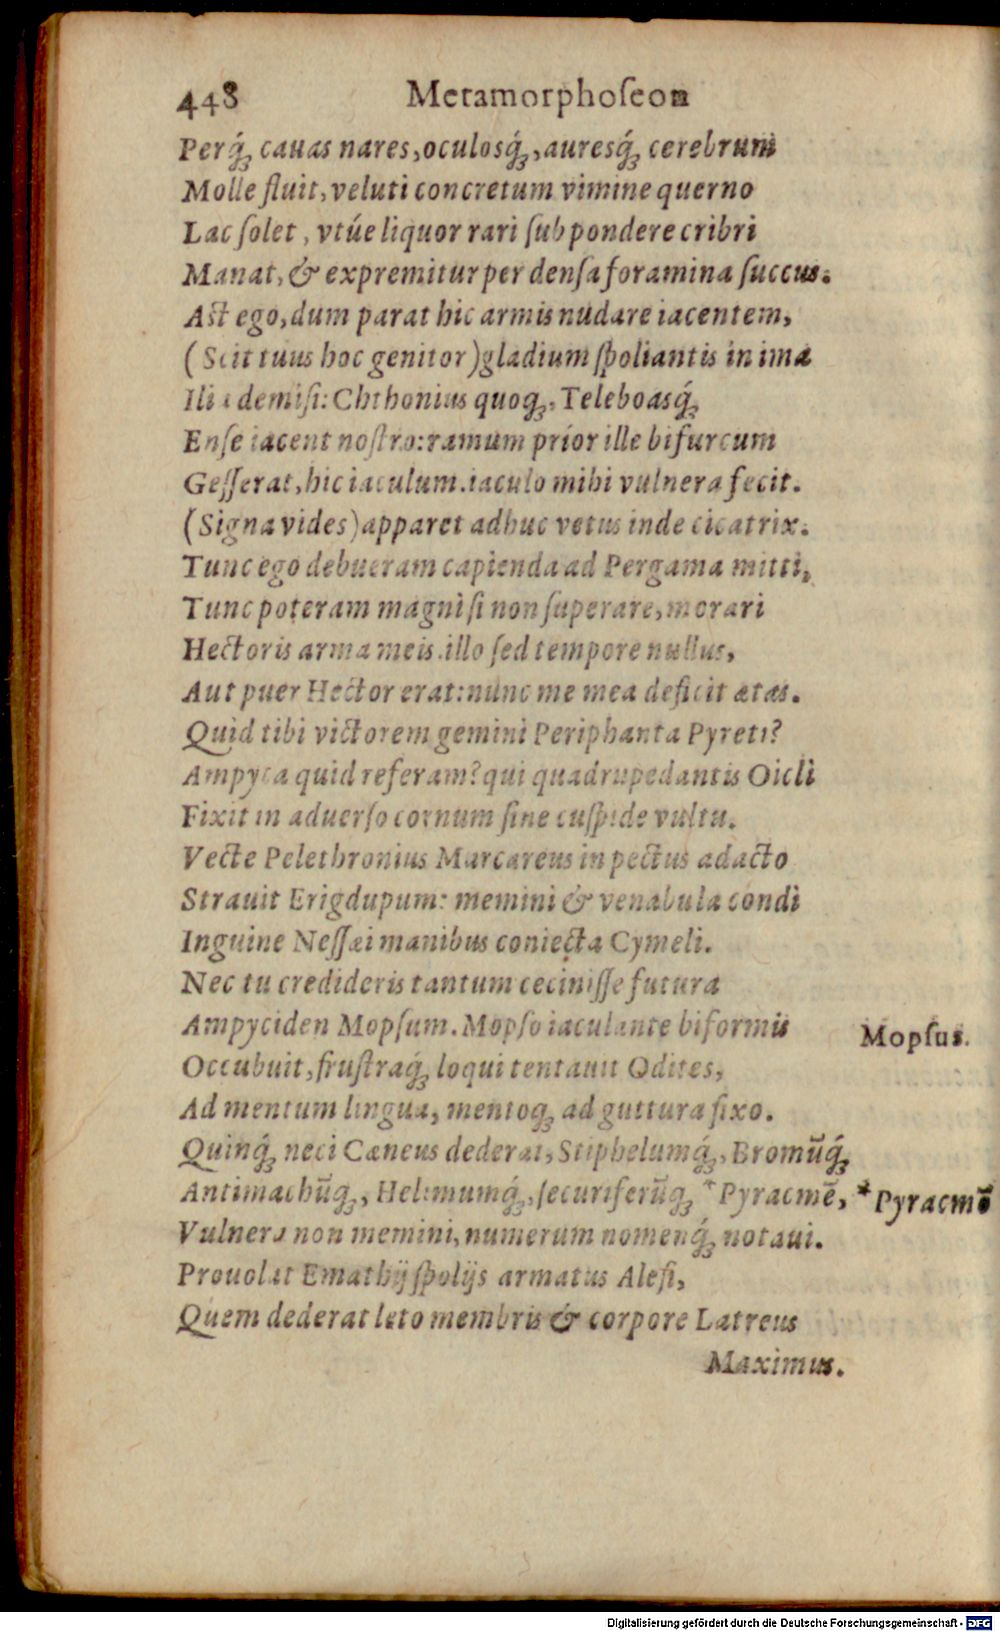 448 Metamorphoſeon
Perq́; cauas nares, oculosq́;, auresq́; cerebrum
Molle fluit, veluti concretum vimine querno
Lac ſolet, vtúe liquor rari ſub pondere cribri
Manat, & expremitur per denſa foramina ſuccus.
Aſt ego, dum parat hic armis nudare iacentem,
(Scit tuus hoc genitor) gladium ſpoliantis in ima
Ilia demiſi: Chthonius quoq;, Teleboasq́;
Enſe iacent noſtro: ramum prior ille bifurcum
Geſſerat, hic iaculum. iaculo mihi vulnera fecit.
(Signa vides) apparet adhuc vetus inde cicatrix.
Tunc ego debueram capienda ad Pergama mitti,
Tunc poteram magni ſi non ſuperare, morari
Hectoris arma meis. illo ſed tempore nullus,
Aut puer Hector erat: nunc me mea deficit ætas.
Quid tibi victorem gemini Periphanta Pyreti?
Ampyca quid referam? qui quadrupedantis Oicli
Fixit in aduerſo cornum ſine cuſpide vultu.
Vecte Pelethronius Marcareus in pectus adacto
Strauit Erigdupum: memini & venabula condi
Inguine Neſſæi manibus coniecta Cymeli.
Nec tu credideris tantum ceciniſſe futura
Ampyciden Mopſum. Mopſo iaculante biformis
Mopſus.
Occubuit, fruſtraq́; loqui tentauit Odites,
Ad mentum lingua, mentoq; ad guttura fixo.
Quinq́; neci Cæneus dederat, Stiphelumq́;, Bromũq́;
Antimachũq;, Helimumq́;, ſecuriferũq; *Pyracmẽ,
*Pyracmõ
Vulnera non memini, numerum nomenq́; notaui.
Prouolat Emathij ſpolijs armatus Aleſi,
Quem dederat leto membris & corpore Latreus
Maximus.
Digitalisierung gefördert durch die Deutsche Forschungsgemeinschaft - DFG